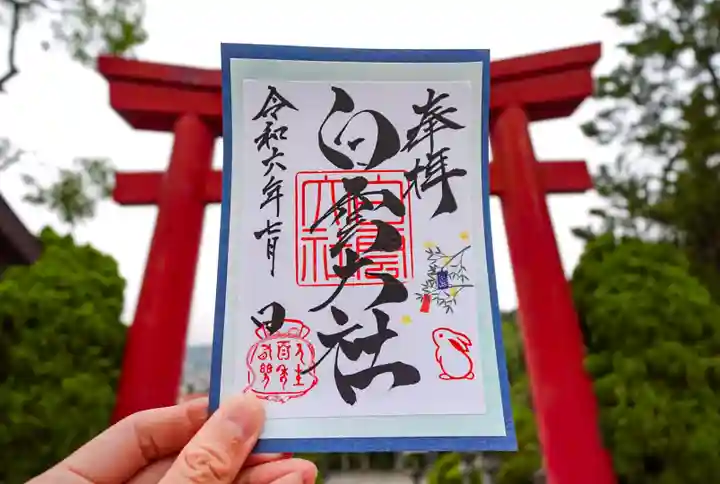 奉拝
白雲大社
令和六年七月 日